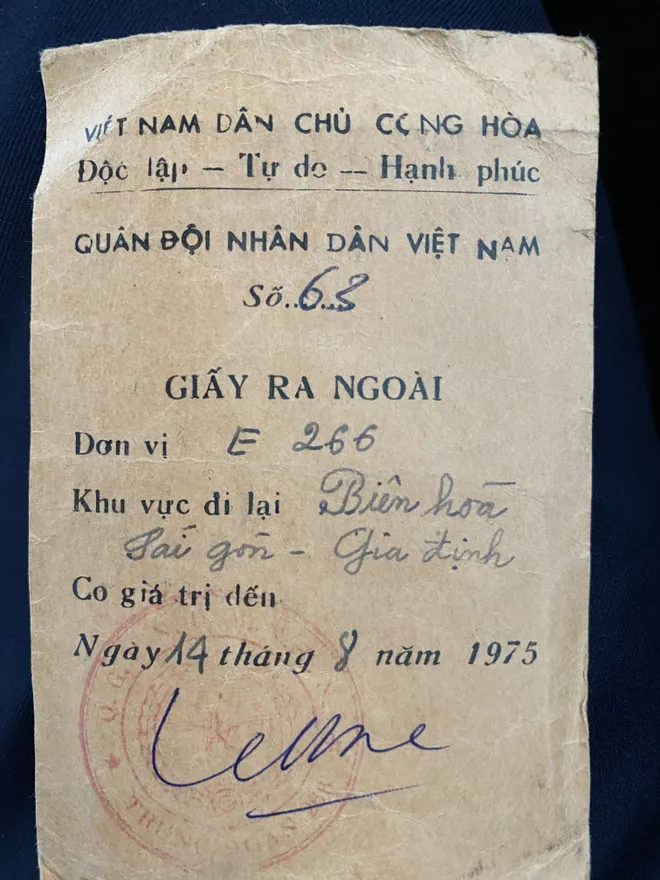 VIỆT NAM DÂN CHỦ CỘNG HÒA
Độc lập – Tự do – Hạnh phúc
QUÂN ĐỘI NHÂN DÂN VIỆT NAM
Số......63
GIẤY RA NGOÀI
Đơn vị E 266
Khu vực đi lại Biên hoà
Sài gòn - Gia định
Co giá trị dến
Ngày 14 tháng 8 năm 1975
TRUNG ĐOÀN